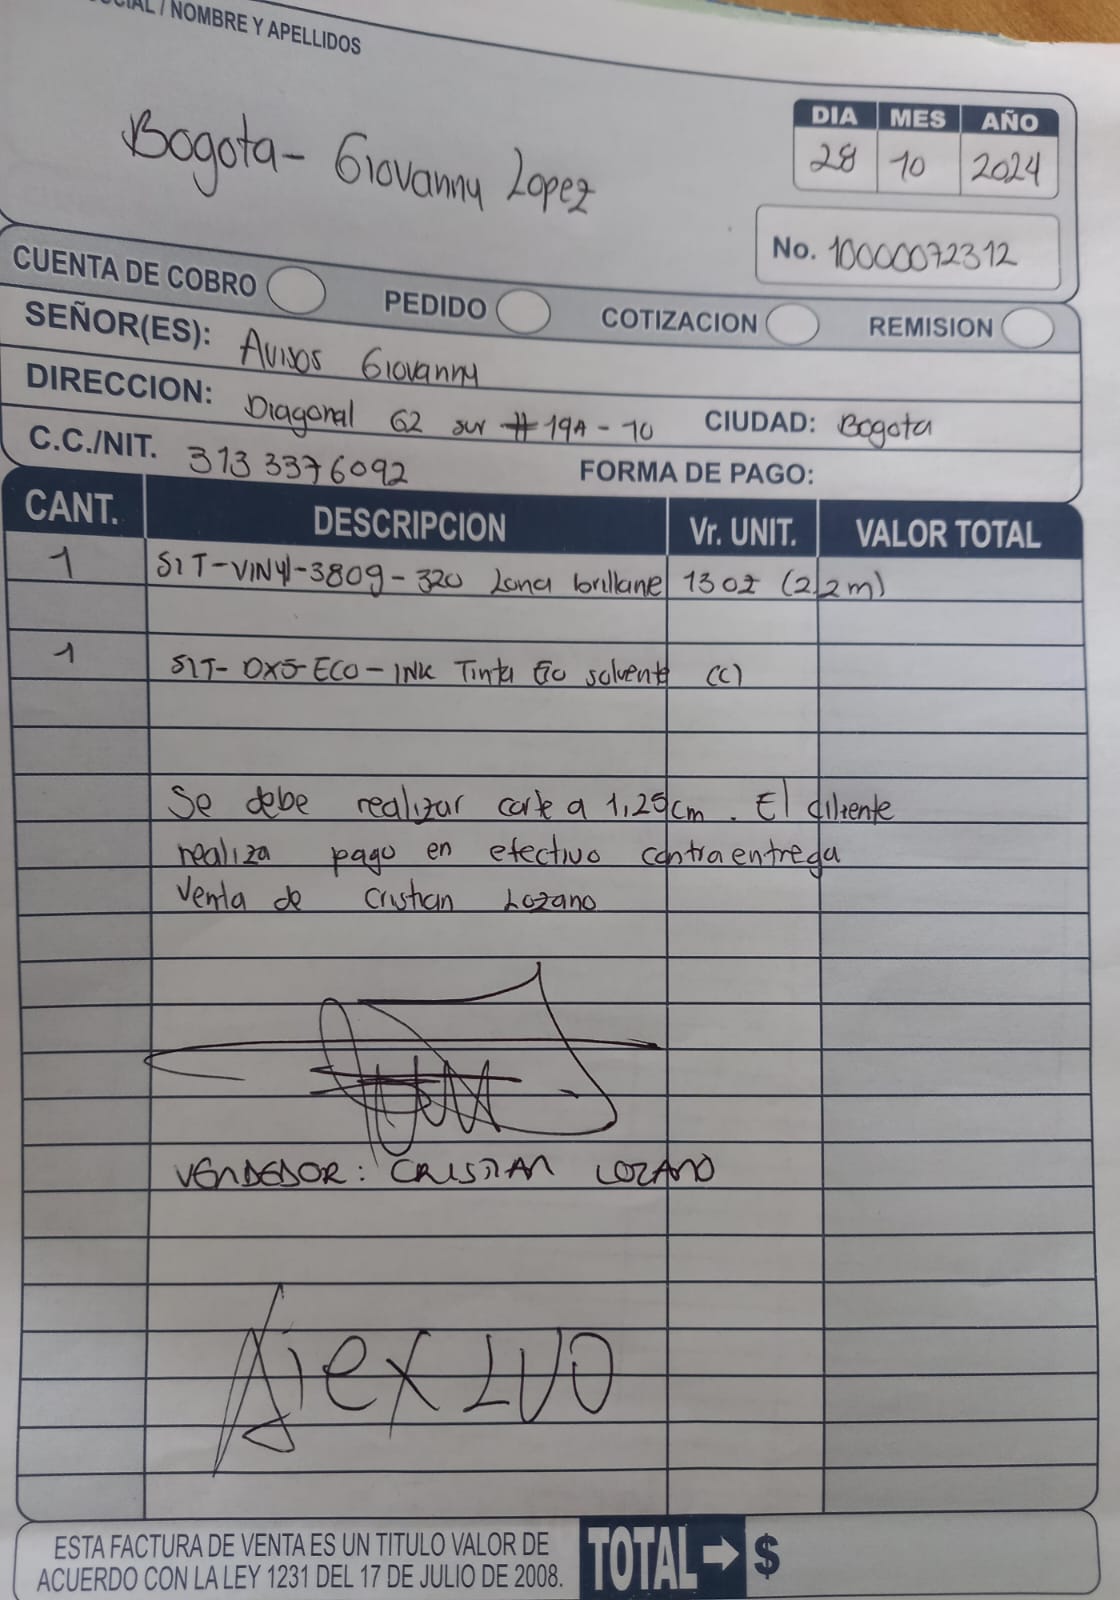 SOCIAL / NOMBRE Y APELLIDOS
Bogota - Giovanny Lopez
DIA MES AÑO
28 10 2024
No. 10000072312
CUENTA DE COBRO PEDIDO COTIZACION REMISION
SEÑOR(ES): Avisos Giovanny
DIRECCION: Diagonal 62 sur # 19A - 10 CIUDAD: Bogota
C.C./NIT. 313 3376092 FORMA DE PAGO:
CANT. DESCRIPCION Vr. UNIT. VALOR TOTAL
1 SIT-VINYL-3809-320 Lona brillane 13oz (2.2m)
1 SIT-DX5-ECO-INK Tinta Eco solvente (C)
Se debe realizar corte a 1,25cm. El cliente
realiza pago en efectivo contraentrega
Venta de Cristian Lozano
VENDEDOR: CRISTIAN LOZANO
ESTA FACTURA DE VENTA ES UN TITULO VALOR DE
ACUERDO CON LA LEY 1231 DEL 17 DE JULIO DE 2008.
TOTAL → $